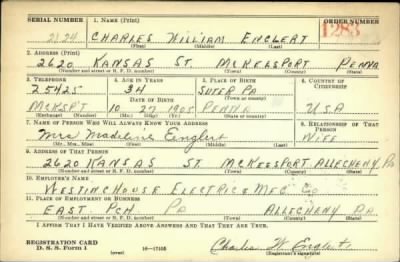 SERIAL NUMBER 1. NAME (Print) ORDER NUMBER
2124 CHARLES WILLIAM ENGLERT 1283
(First) (Middle) (Last)
2. ADDRESS (Print)
2620 KANSAS ST. MCKEESPORT PENNA
(Number and street or R. F. D. number) (Town) (County) (State)
3. TELEPHONE 4. AGE IN YEARS 5. PLACE OF BIRTH 6. COUNTRY OF CITIZENSHIP
25425 34 SUTER PA
DATE OF BIRTH (Town or county)
MCKSP'T 10 27 1905 PENNA USA
(Exchange) (Number) (Mo.) (Day) (Yr.) (State or country)
7. NAME OF PERSON WHO WILL ALWAYS KNOW YOUR ADDRESS 8. RELATIONSHIP OF THAT PERSON
Mrs Madeline Englert WIFE
(Mr., Mrs., Miss) (First) (Middle) (Last)
9. ADDRESS OF THAT PERSON
2620 KANSAS ST MCKEESPORT ALLEGHENY PA
(Number and street or R. F. D. number) (Town) (County) (State)
10. EMPLOYER'S NAME
WESTINGHOUSE ELECTRIC & MFG Co
11. PLACE OF EMPLOYMENT OR BUSINESS
EAST PGH PA ALLEGHENY PA
(Number and street or R. F. D. number) (Town) (County) (State)
I AFFIRM THAT I HAVE VERIFIED ABOVE ANSWERS AND THAT THEY ARE TRUE.
REGISTRATION CARD
D. S. S. Form 1 (over) 16—17105 Charles W Englert
(Registrant's signature)